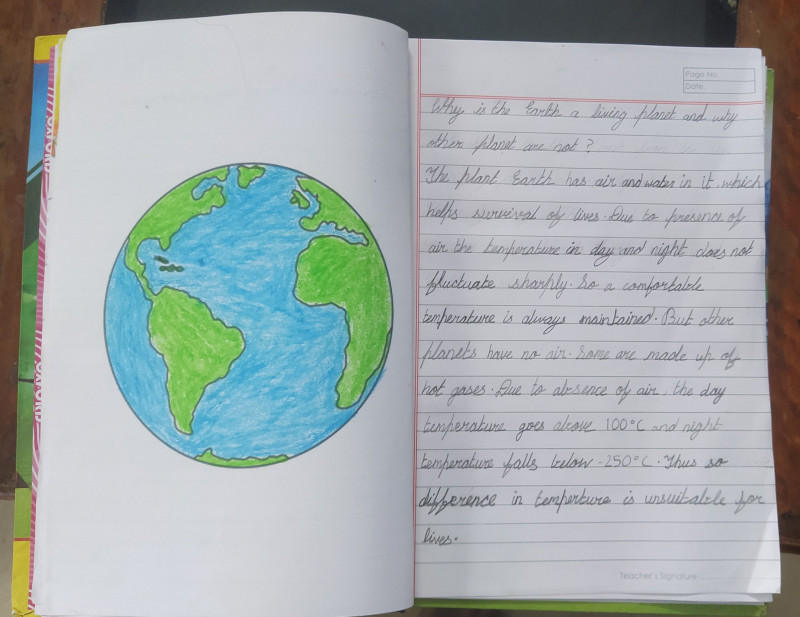 Page No.
Date.
Why is the Earth a living planet and why
other planet are not?
The plant Earth has air and water in it, which
helps survival of lives. Due to presence of
air the temperature in day and night does not
ffluctuate sharply. So a comfortable
temperature is always maintained. But other
planets have no air. Some are made up of
hot gases. Due to absence of air, the day
temperature goes above 100°C and night
temperature falls below -250°C. Thus so
difference in temperture is unsuitable for
lives.
Teacher's Signature